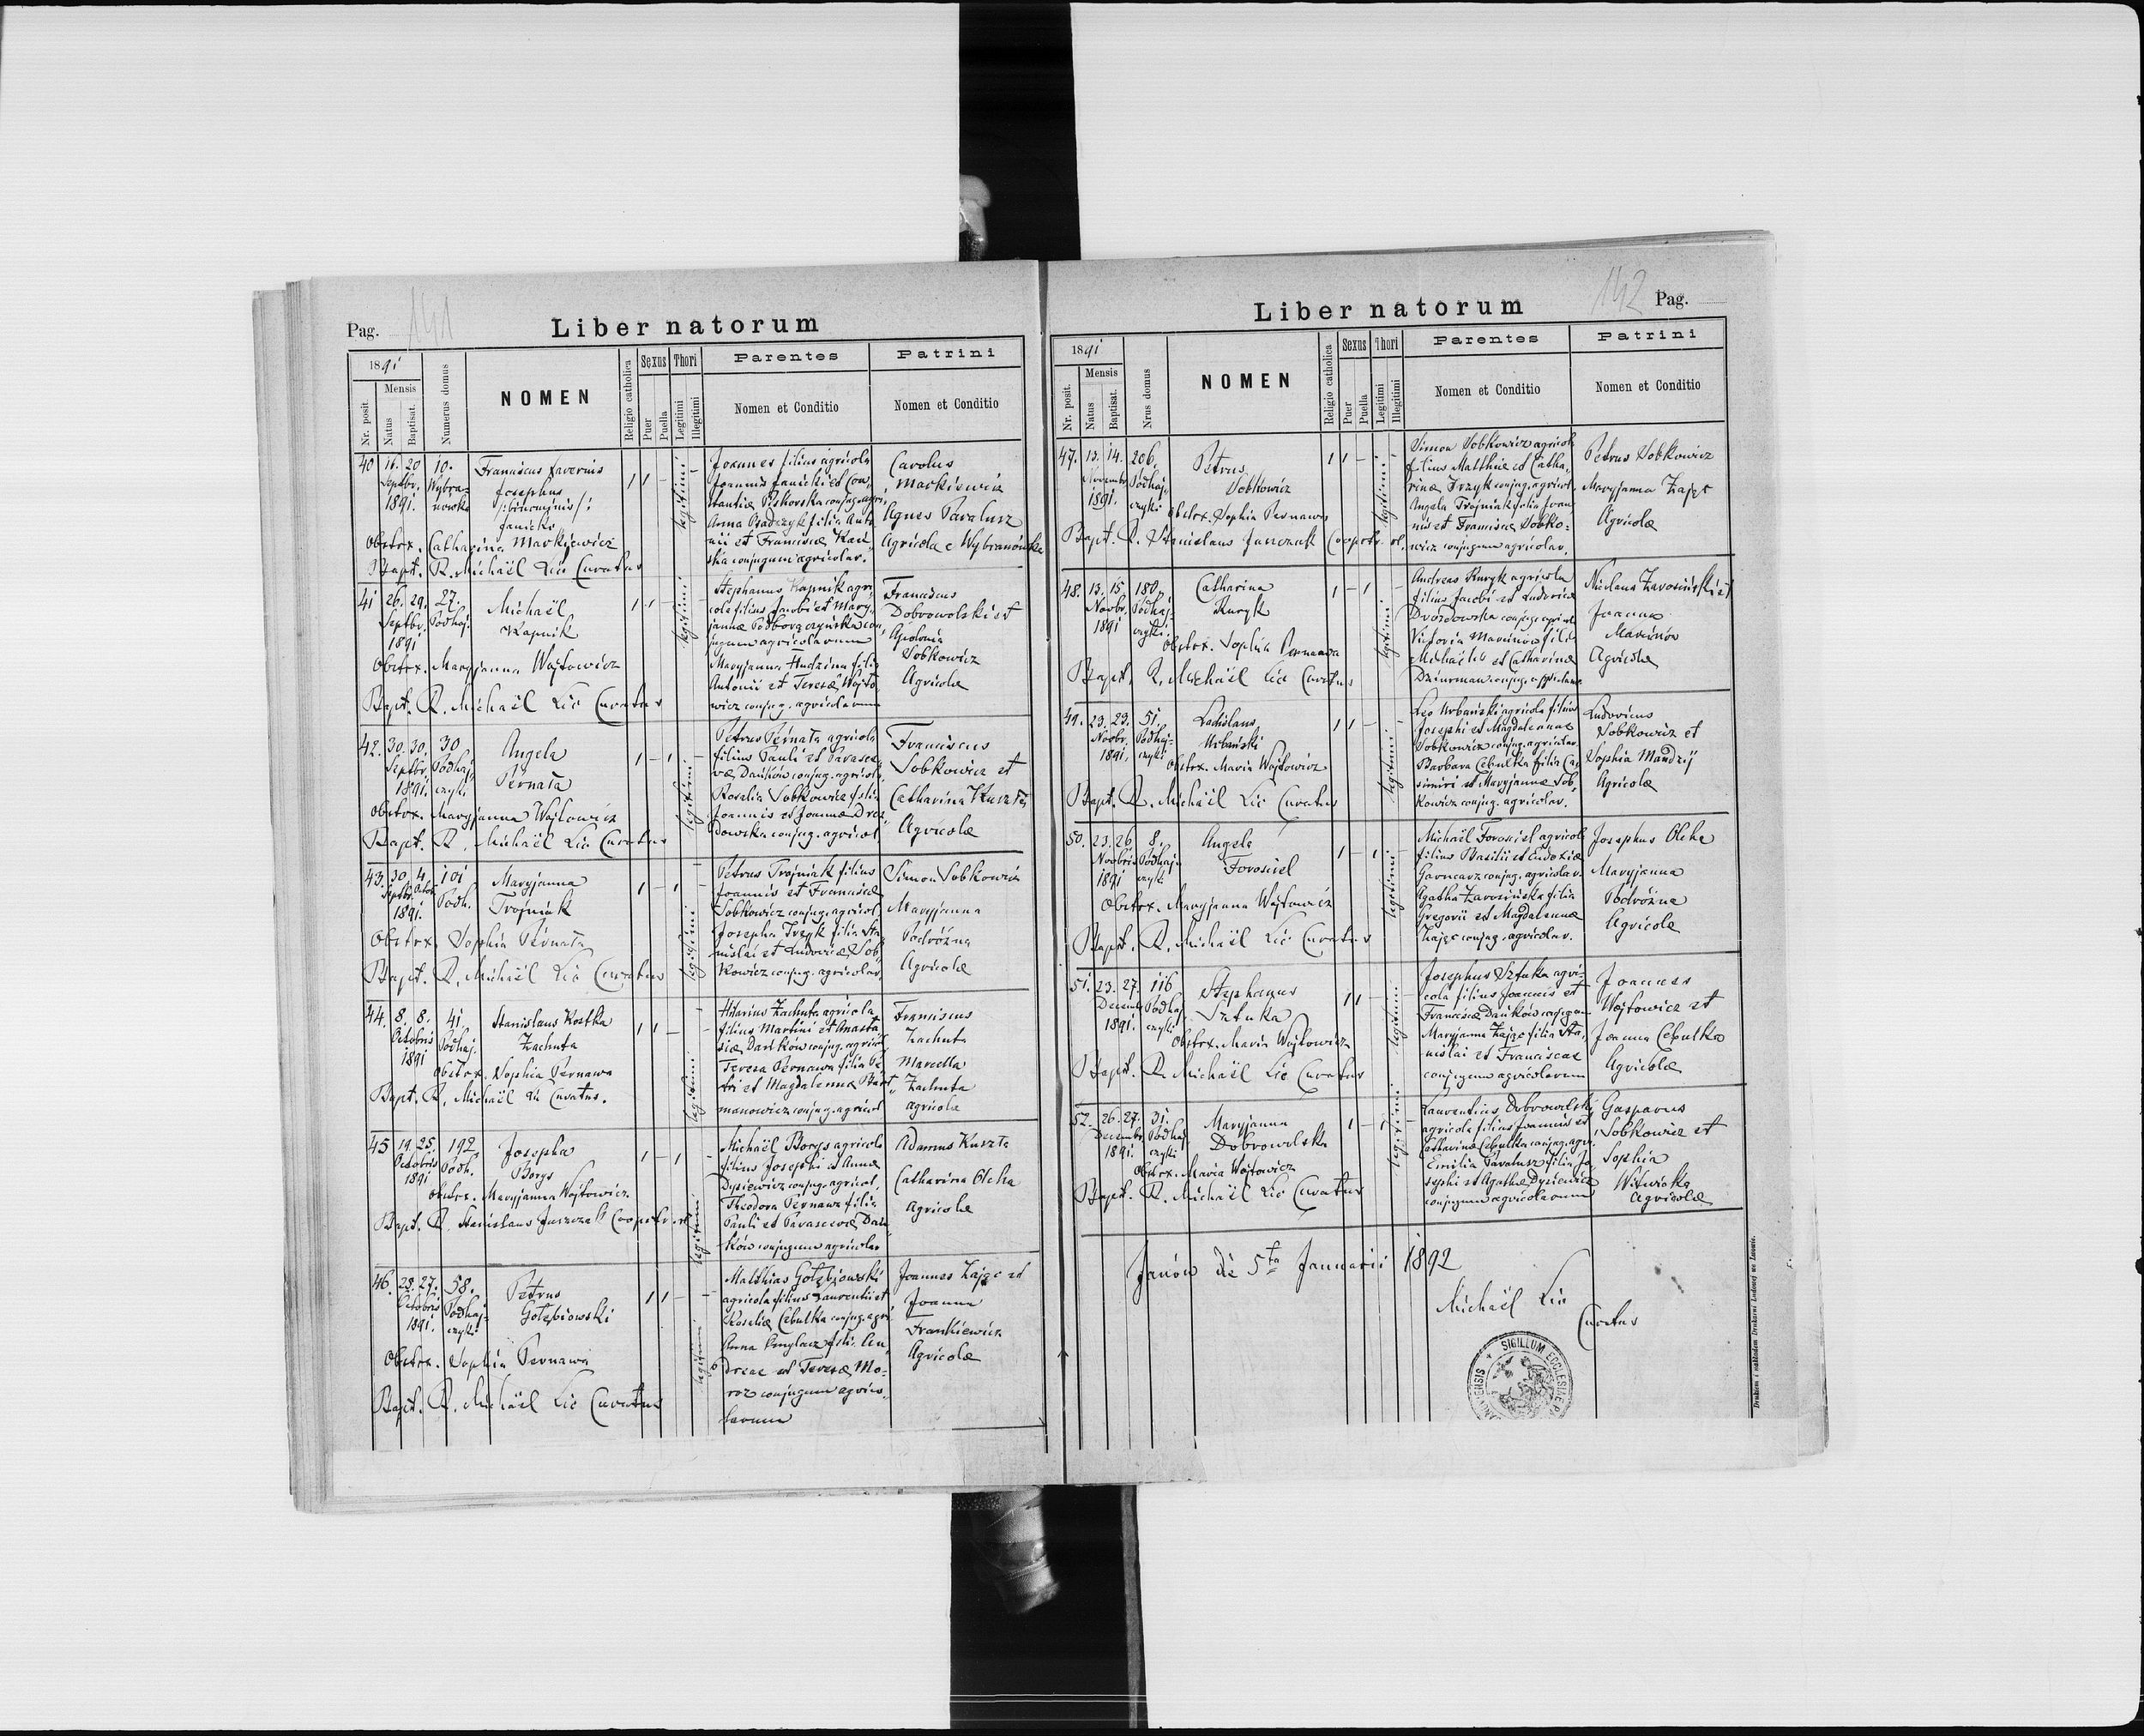 Pag. 141
Liber natorum
1891
Nr. posit.
Mensis
Natus
Baptisat.
Numerus domus
NOMEN
Religio catholica
Sexus
Puer
Puella
Thori
Legitimi
Illegitimi
Parentes
Nomen et Conditio
Patrini
Nomen et Conditio
40 20 10.
Septbr. 1891.
Franciscus Xaverius
Josephus
Janicki
legitimi
Obstrx. Catharina Markiewicz
Bapt. R. Michaël Lic Curatus
Joannes filius agricola
Joannis Janicki et Con-
Anna filia Anto-
nii et Francisca
ska conjugum agricolar.
Carolus
Markiewicz
Agnes Paralusz
Agricolae Wybranówka
41 26. 29. 27.
Septbr. Podhaj.
1891
Michaël
Kapnik
legitimi
Obstrx. Maryjanna Wojtowicz
Bapt. R. Michaël Lic Curatus
Stephanus Kapnik agri-
cola filius Jacobi et Mary-
jannae con-
jugum agricolarum
Maryjanna Hudzina filia
Antonii et Teresae Wojto-
wicz conjug. agricolarum
Franciscus
Dobrowolski et
Apolonia
Sobkowicz
Agricolae
42. 30. 30. 30
Septbr. Podhaj-
1891. czyki
Angela
Pernata
legitimi
Obstrx. Maryjanna Wojtowicz
Bapt. R. Michaël Lic Curatus
Petrus Pernata agricola
filius Pauli et Parasce-
vae Dańków conjug. agricol.
Rosalia Sobkowicz filia
Joannis et Joannae Droz-
dowska conjug. agricol.
Franciscus
Sobkowicz et
Catharina Kuszta
Agricolae
43. 30. 4. 101
Septbr. Octob. Podh.
1891.
Maryjanna
Trojniak
legitimi
Obstrx. Sophia Pernata
Bapt. R. Michaël Lic Curatus
Petrus Trojniak filius
Joannis et Franciscae
Sobkowicz conjug. agricol.
Josepha Trzyk filia Sta-
nislai et Ludovicae Sob-
kowicz conjug. agricolar.
Simon Sobkowicz
Maryjanna
Podróżna
Agricolae
44. 8. 8. 41
Octobris Podhaj.
1891
Stanislaus Kostka
Zachuta
legitimi
Obstrx. Sophia Pernawa
Bapt. R. Michaël Lic Curatus.
Hilarius Zachuta agricola
filius Martini et Anasta-
siae Dańków conjug. agricol.
Teresa Pernawa filia Pe-
tri et Magdalenae
manowicz conjug. agricol
Franciscus
Zachuta
Marcella
Zachuta
agricolae
45 19. 25. 192
Octobris Podh.
1891
Josepha
Borys
legitimi
Obstrx. Maryjanna Wojtowicz
Bapt. R. Stanislaus Juszczak Cooptr.
Michaël Borys agricola
filius Josephi et Annae
Dysiewicz conjug. agricol.
Theodora Pernawa filia
Pauli et Parascevae Dań-
ków conjugum agricolar
Adamus Kuszta
Catharina Olcha
Agricolae
46. 25. 27. 58.
Octobris Podhaj-
1891. czyki
Petrus
Gołębiowski
legitimi
Obstrx. Sophia Pernawa
Bapt. R. Michaël Lic Curatus
Matthias Gołębiowski
agricola filius Laurentii et
Rosaliae Cebulka conjug. agri.
Anna filia An-
dreae et Teresae Mo-
roz conjugum agrico-
larum
Joannes Zając et
Joanna
Frankiewicz
Agricolae
142 Pag.
Liber natorum
1891
Nr. posit.
Mensis
Natus
Baptisat.
Nrus domus
NOMEN
Religio catholica
Sexus
Puer
Puella
Thori
Legitimi
Illegitimi
Parentes
Nomen et Conditio
Patrini
Nomen et Conditio
47. 13. 14. 206.
Novembr. Podhaj-
1891. czyki
Petrus
Sobkowicz
legitimi
Obstrx. Sophia Pernawa
Bapt. R. Stanislaus Juszczak Cooptr.
Simon Sobkowicz agricola
filius Matthiae et Catha-
rinae Trzyk conjug. agricol.
Angela Trojniak filia Joan-
nis et Franciscae Sobko-
wicz conjugum agricolar.
Petrus Sobkowicz
Maryjanna Zając
Agricolae
48. 13. 15. 180,
Novbr. Podhaj-
1891 czyki
Catharina
Kuryk
legitimi
Obstrx. Sophia Pernawa
Bapt. R. Michaël Lic Curatus
Andreas Kuryk agricola
filius Jacobi et Ludovicae
conjug. agricol.
Victoria filia
Michaëlis et Catharinae
Dziurman conjug. agricolar.
Nicolaus Zarosiński et
Joanna
Agricolae
49. 23. 29. 51.
Novbr. Podhaj-
1891. czyki
Ladislaus
Urbański
legitimi
Obstrx. Maria Wojtowicz
Bapt. R. Michaël Lic Curatus
Leo Urbański agricola filius
Josephi et Magdalenae
Sobkowicz conjug. agricolar.
Barbara Cebulka filia Ca-
simiri et Maryjannae Sob-
kowicz conjug. agricolar.
Ludovicus
Sobkowicz et
Sophia Mandzij
Agricolae
50. 23. 26. 8.
Novbris Podhaj-
1891 czyki
Angela
Forosiel
legitimi
Obstrx. Maryjanna Wojtowicz
Bapt. R. Michaël Lic Curatus
Michaël Forosiel agricola
filius Basilii et Eudoxiae
Garncarz conjug. agricolar.
Agatha Zarosińska filia
Gregorii et Magdalenae
Zając conjug. agricolar.
Josephus Olcha
Maryjanna
Podróżna
Agricolae
51. 23. 27. 116
Decemb. Podhaj-
1891. czyki
Stephanus
Sztuka
legitimi
Obstrx. Maria Wojtowicz
Bapt. R. Michaël Lic Curatus
Josephus Sztuka agri-
cola filius Joannis et
Franciscae Dańków conjugum
Maryjanna Zając filia Sta-
nislai et Franciscae
conjugum agricolarum
Joannes
Wojtowicz et
Joanna Cebulka
Agricolae
52. 26. 27. 31.
Decembr. Podhaj-
1891. czyki
Maryjanna
Dobrowolska
legitimi
Obstrx. Maria Wojtowicz
Bapt. R. Michaël Lic Curatus
Laurentius Dobrowolski
agricola filius Joannis et
Catharinae Cebulka conjug. agri.
Emilia Paralusz filia Jo-
sephi et Agathae Dysiewicz
conjugum agricolarum
Gasparus
Sobkowicz et
Sophia
Witwicka
Agricolae
Janów die 5ta Januarii 1892
Michaël Lic
Curatus
SIGILLUM ECCLESIAE
Drukiem i nakładem Drukarni Ludowej we Lwowie.